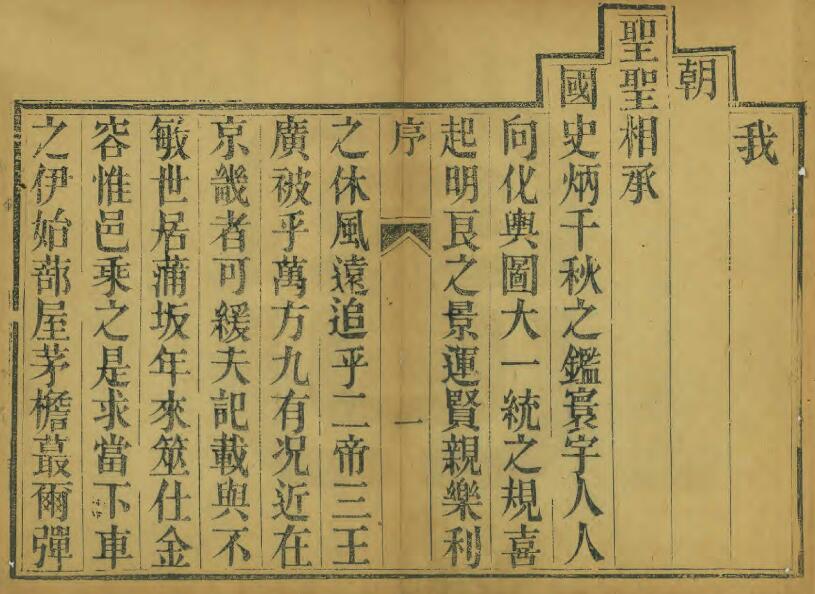 我
朝
聖聖相承
國史炳千秋之鑑寰宇人人
向化輿圖大一統之規喜
起明良之景運賢親樂利
序 一
之休風遠追乎二帝三王
廣被乎萬方九有况近在
京畿者可緩夫記載與不
敏世居蒲坂年來筮仕金
容惟邑乘之是求當下車
之伊始蔀屋茅檐蕞爾彈